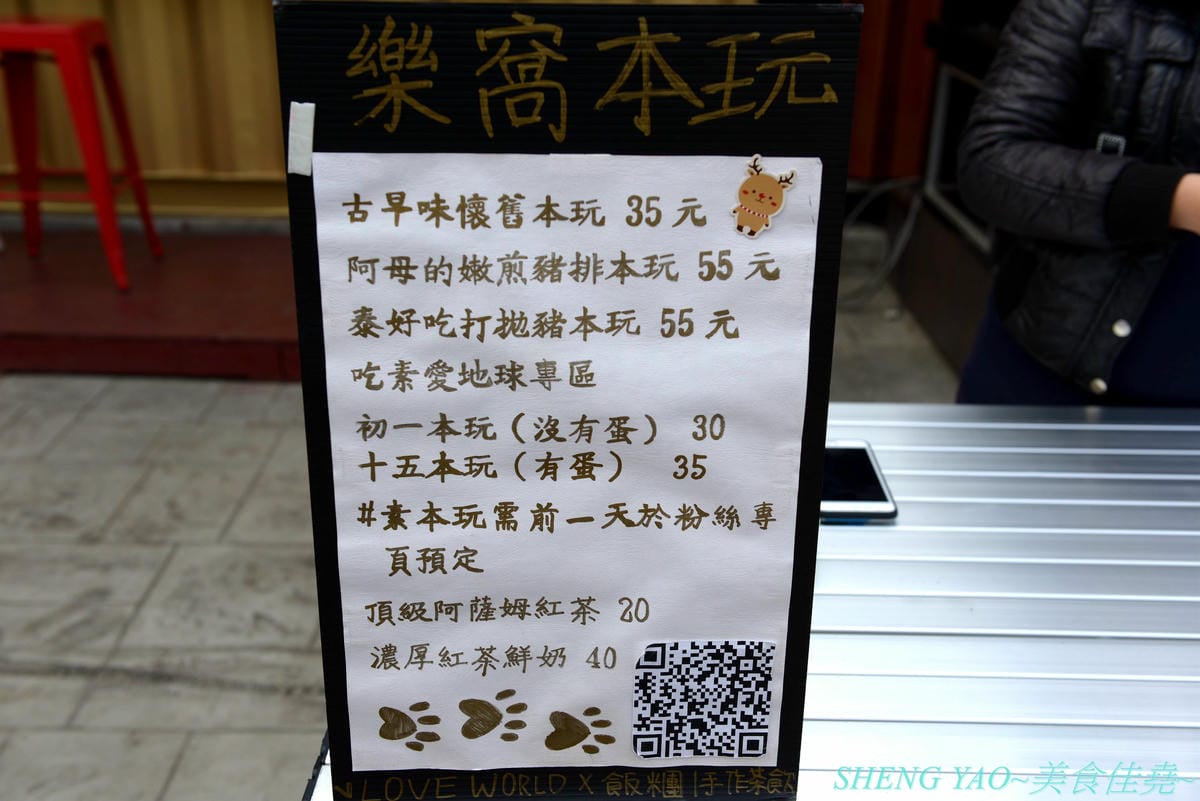 樂窩本玩
古早味懷舊本玩 35元
阿母的嫩煎豬排本玩 55元
泰好吃打拋豬本玩 55元
吃素愛地球專區
初一本玩(沒有蛋) 30
十五本玩(有蛋) 35
#素本玩需前一天於粉絲專
頁預定
頂級阿薩姆紅茶 20
濃厚紅茶鮮奶 40
LOVE WORLD X 飯糰|手作茶飲
SHENG YAO~美食佳堯~